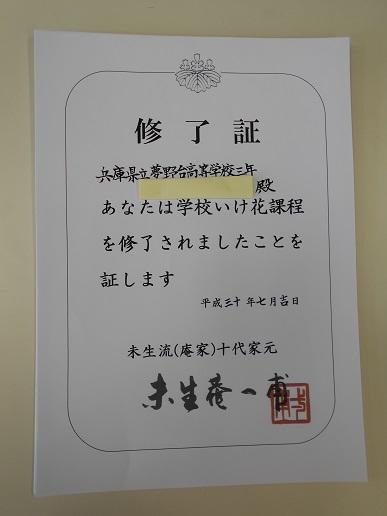 修了証
兵庫県立夢野台高等学校三年
殿
あなたは学校いけ花課程
を修了されましたことを
証します
平成三十年七月吉日
未生流(庵家)十代家元
未生菴一甫